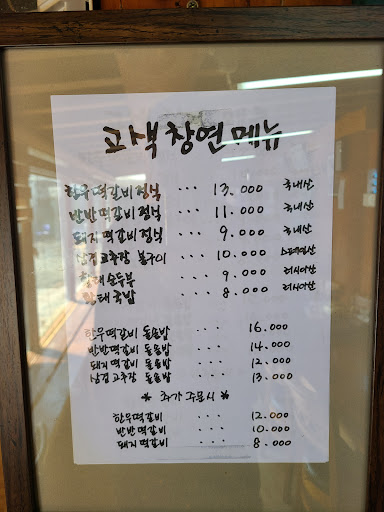 고색창연 메뉴
한우 떡갈비 정식 ··· 13.000 국내산
반반 떡갈비 정식 ··· 11.000 국내산
돼지 떡갈비 정식 ··· 9.000 국내산
삼겹 고추장 불구이 ··· 10.000 스페인산
황태 순두부 ··· 9.000 러시아산
황태 국밥 ··· 8.000 러시아산
한우떡갈비 돌솥밥 ··· 16.000
반반떡갈비 돌솥밥 ··· 14.000
돼지떡갈비 돌솥밥 ··· 12.000
삼겹고추장 돌솥밥 ··· 13.000
* 추가 주문시 *
한우떡갈비 ··· 12.000
반반 떡갈비 ··· 10.000
돼지 떡갈비 ··· 8.000